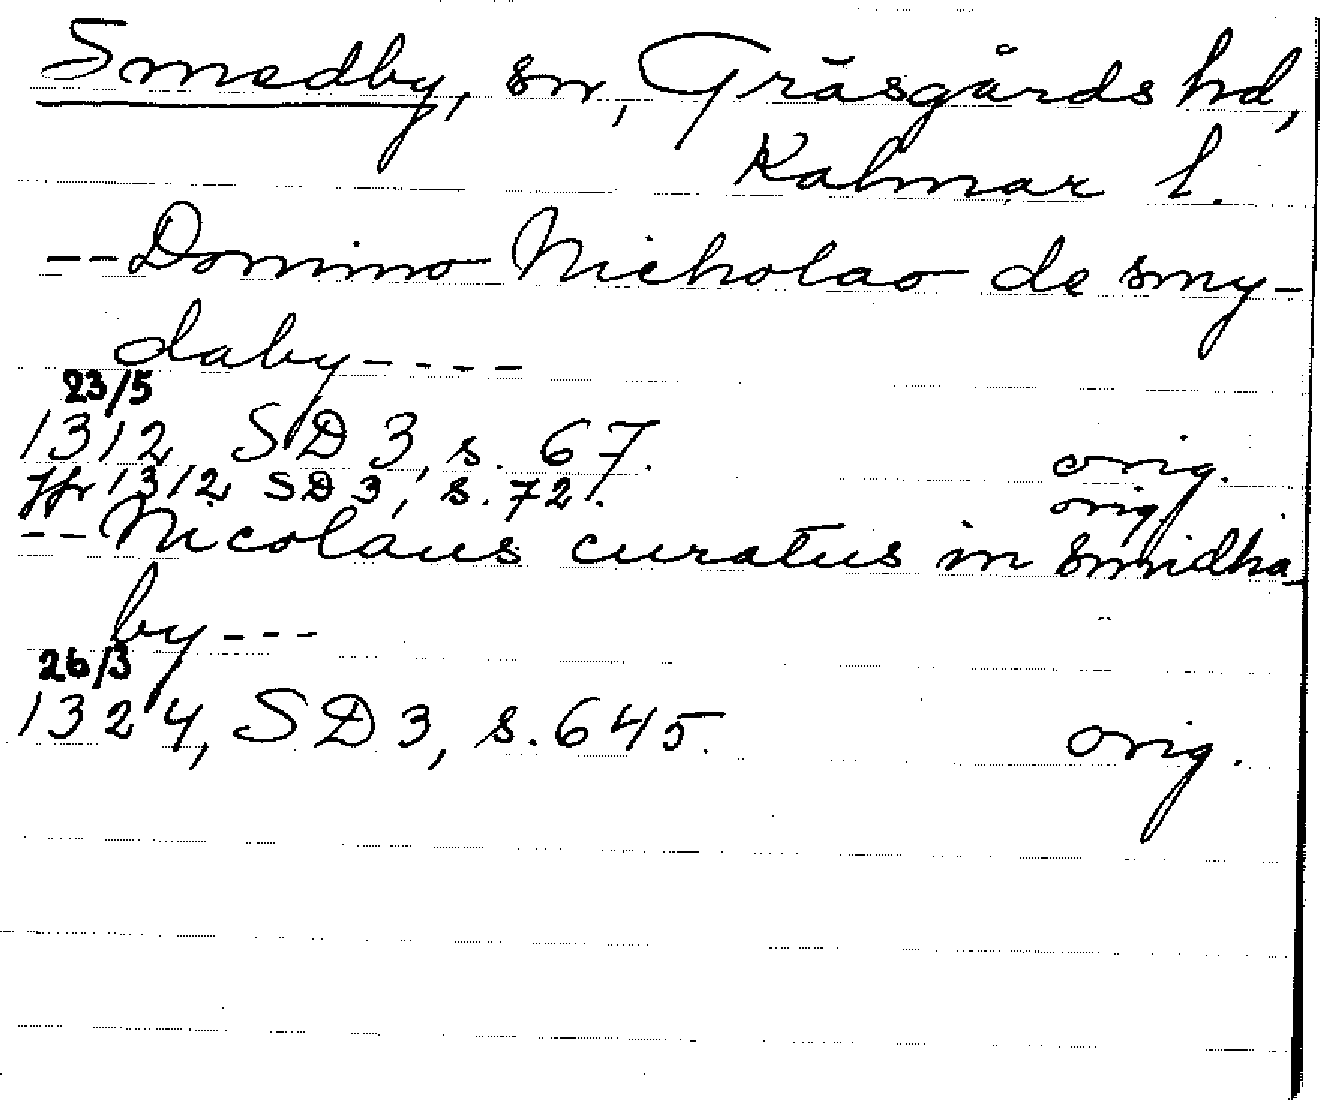 Smedby, sn, Gräsgårds hd,
Kalmar l.
-- Domino Nicholao de smy-
daby ----
23/5
1312, SD 3, s. 67. orig.
Jfr 1312, SD 3, s. 72. orig.
-- Nicolaus curatus in smidha-
by ---
26/3
1324, SD 3, s. 645. orig.